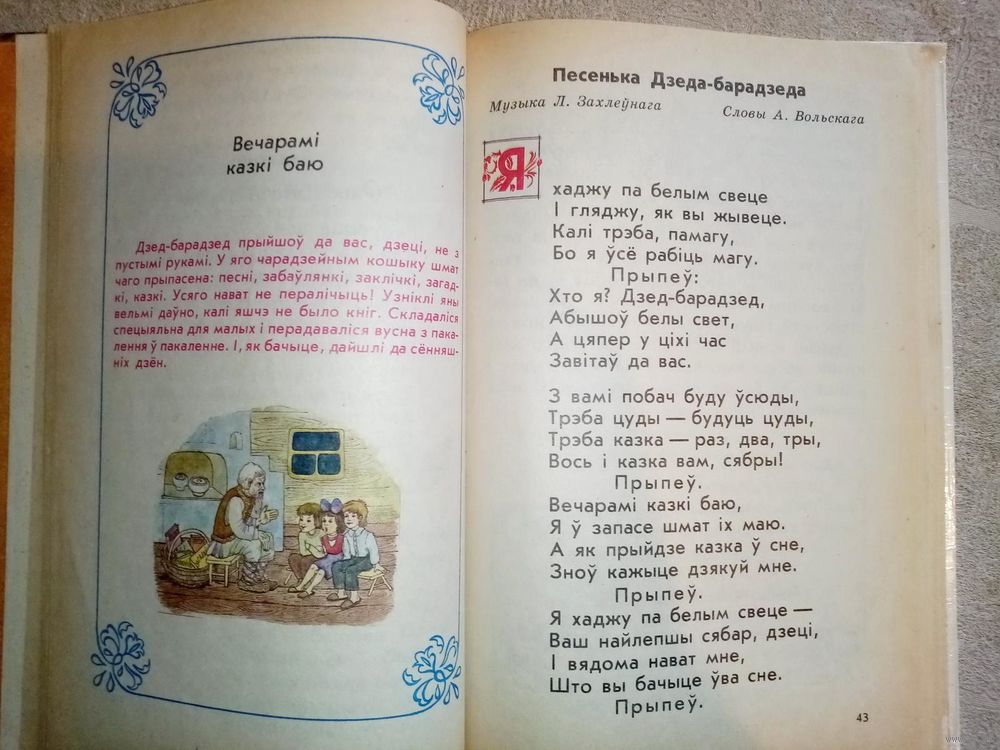 Вечарамі
казкі баю
Дзед-барадзед прыйшоў да вас, дзеці, не з
пустымі рукамі. У яго чарадзейным кошыку шмат
чаго прыпасена: песні, забаўлянкі, заклічкі, загад-
кі, казкі. Усяго нават не пералічыць! Узніклі яны
вельмі даўно, калі яшчэ не было кніг. Складаліся
спецыяльна для малых і перадаваліся вусна з пака-
лення ў пакаленне. І, як бачыце, дайшлі да сённяш-
ніх дзён.
Песенька Дзеда-барадзеда
Музыка Л. Захлеўнага
Словы А. Вольскага
Я
хаджу па белым свеце
І гляджу, як вы жывеце.
Калі трэба, памагу,
Бо я ўсё рабіць магу.
Прыпеў:
Хто я? Дзед-барадзед,
Абышоў белы свет,
А цяпер у ціхі час
Завітаў да вас.
З вамі побач буду ўсюды,
Трэба цуды — будуць цуды,
Трэба казка — раз, два, тры,
Вось і казка вам, сябры!
Прыпеў.
Вечарамі казкі баю,
Я ў запасе шмат іх маю.
А як прыйдзе казка ў сне,
Зноў кажыце дзякуй мне.
Прыпеў.
Я хаджу па белым свеце —
Ваш найлепшы сябар, дзеці,
І вядома нават мне,
Што вы бачыце ўва сне.
Прыпеў.
43